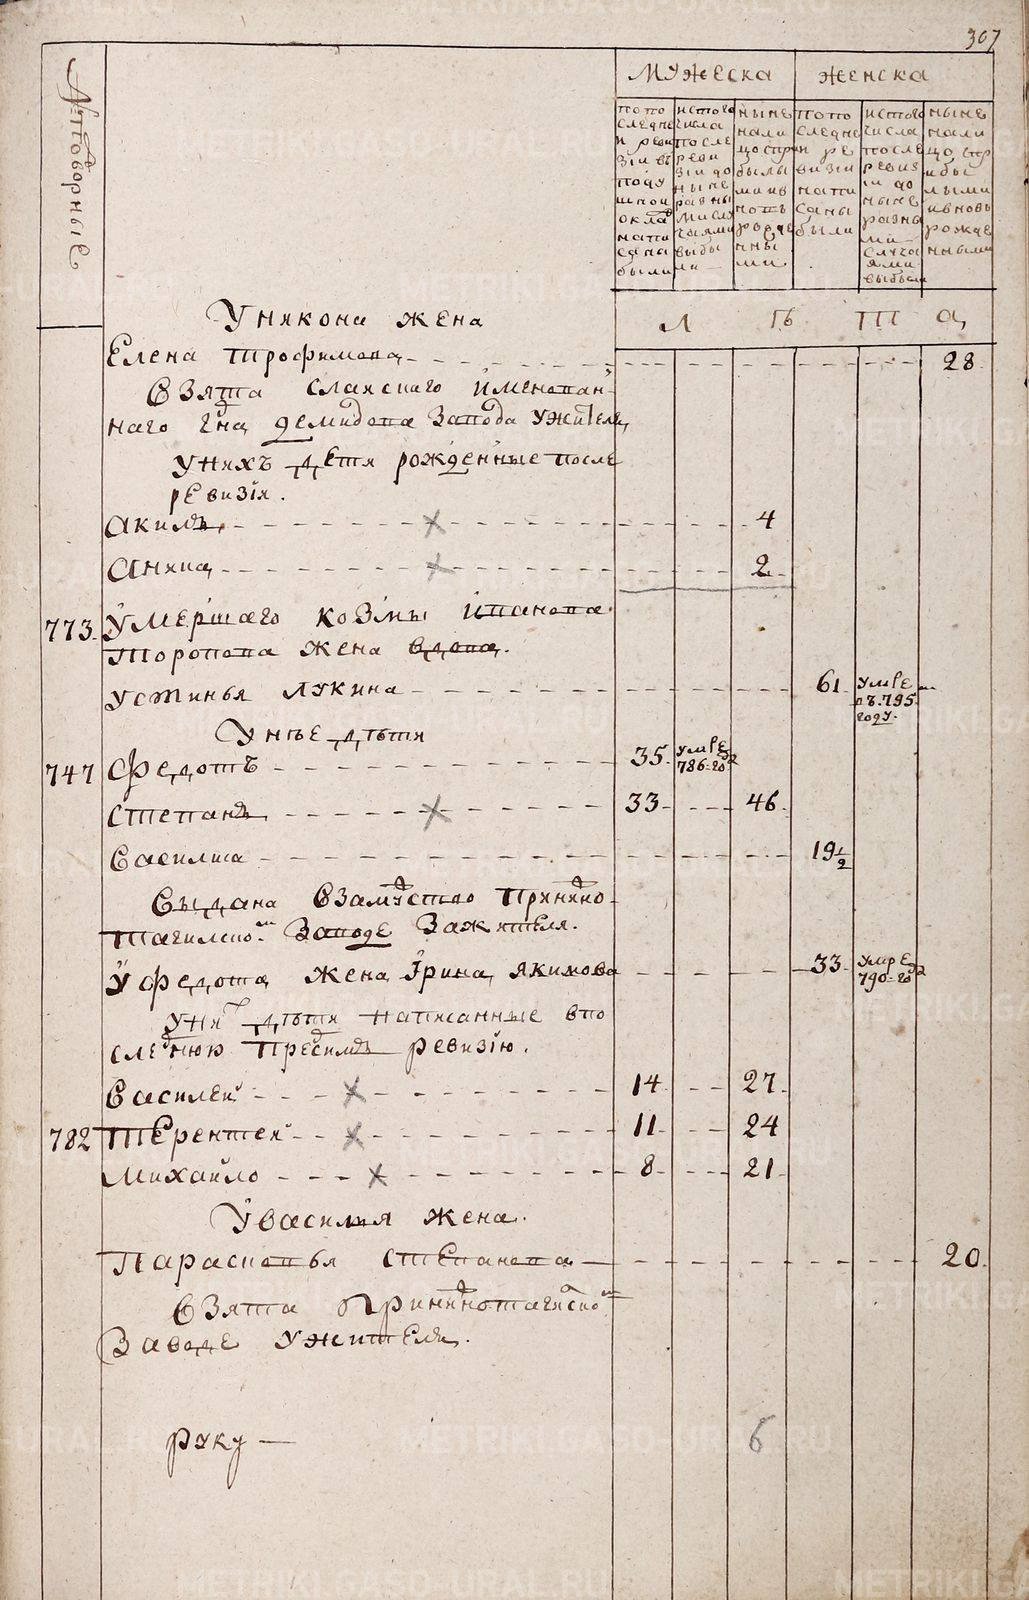 307
№ дворные
мужеска
женска
по по
следне
й реви
зіи въ
поду
шной
окла
напи
саны
были
истого
числа
после
реви
зіи до
ныне
разны
ми слу
чаями
выбы
ли
ныне
нали
цо спри
былы
ми и в
новь
рожде
нны
ми
по по
следне
й ре
визіи
напи
саны
были
исто
числа
после
ревиз
іи до
ныне
разны
ми
случа
ями
выбыли
ныне
нали
цо спр
ибы
лыми
ивновь
рожде
нными
Уникона жена
Елена трофимова
28
Взята
имянован
наго гдна демидова Завода ужителя
унихъ дети рожденные после
ревизіи.
Акимъ
4
Аника
2
773
Умершаго козмы иванова
торопова жена вдова.
устинья лукина
61
умре
въ.795.
году.
Унее дети
747
Федотъ
35
умре
786 го
Степанъ
33
46
Василиса
19 1/2
Выдана Взамуство
тагилско Заводе Зажителя.
Уфедота жена Ірина якимова
33
умре
790 го
уни дети написанные впо
следнюю пред симъ ревизію.
Василей
14
27
782
Терентей
11
24
Михайло
8
21
Увасилья жена.
Парасковья степанова
20
Взята
Заводе ужителя.
руку
6
METRIKI.GASO-URAL.RU